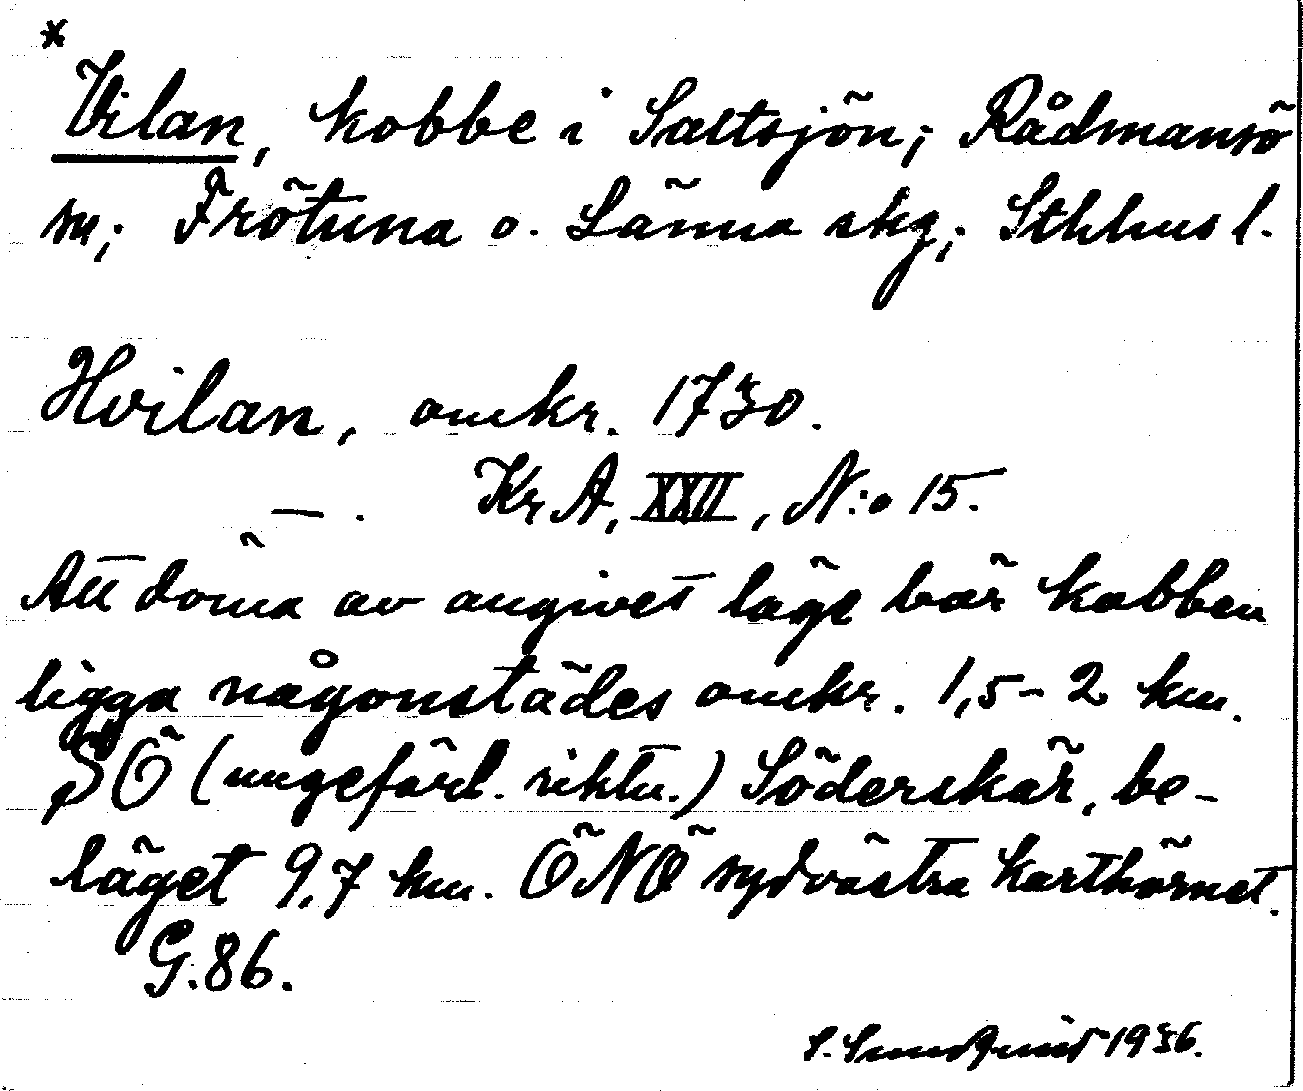 *
Vilan, kobbe i Saltsjön; Rådmansö
sn; Frötuna o. Länna skg; Sthlms l.
Hvilan, omkr. 1730.
— . Kr A, XXII, N:o 15.
Att döma av angivet läge bör kobben
ligga någonstädes omkr. 1,5-2 km.
SÖ (ungefärl. riktn.) Söderskär, be-
läget 9,7 km. ÖNÖ sydvästra karthörnet.
G.86.
S. Sundqvist 1936.